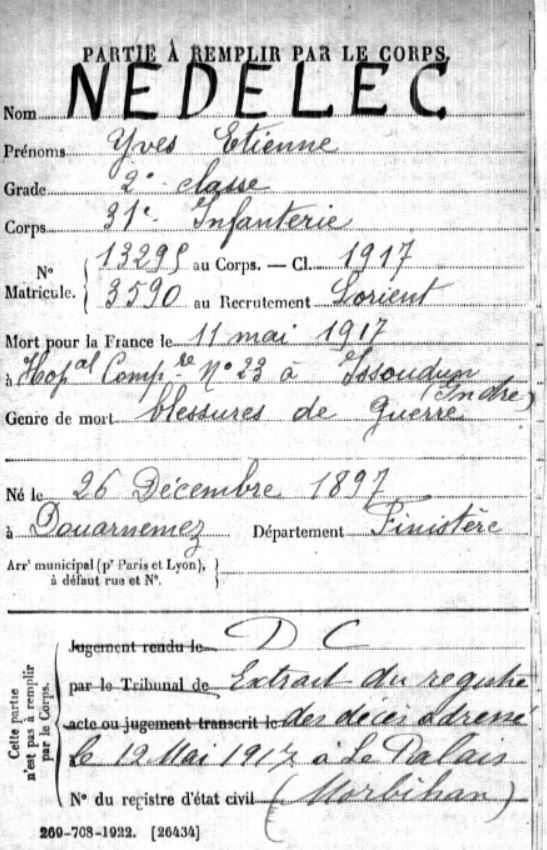 PARTIE À REMPLIR PAR LE CORPS.
Nom NEDELEC
Prénoms Yves Etienne
Grade 2e classe
Corps 31e Infanterie
N° Matricule. { 13295 au Corps. — Cl. 1917
3590 au Recrutement Lorient
Mort pour la France le 11 mai 1917
à Hopal Compre N° 23 à Issoudun
(Indre)
Genre de mort blessures de guerre
Né le 26 Décembre 1897
à Douarnenez Département Finistère
Arrt municipal (pr Paris et Lyon), }
à défaut rue et N°.
Cette partie
n'est pas à remplir
par le Corps.
Jugement rendu le D C
par le Tribunal de Extrait du registre
acte ou jugement transcrit le des décès adressé
le 12 Mai 1917 à Le Palais
N° du registre d'état civil (Morbihan)
269-708-1922. [26434]